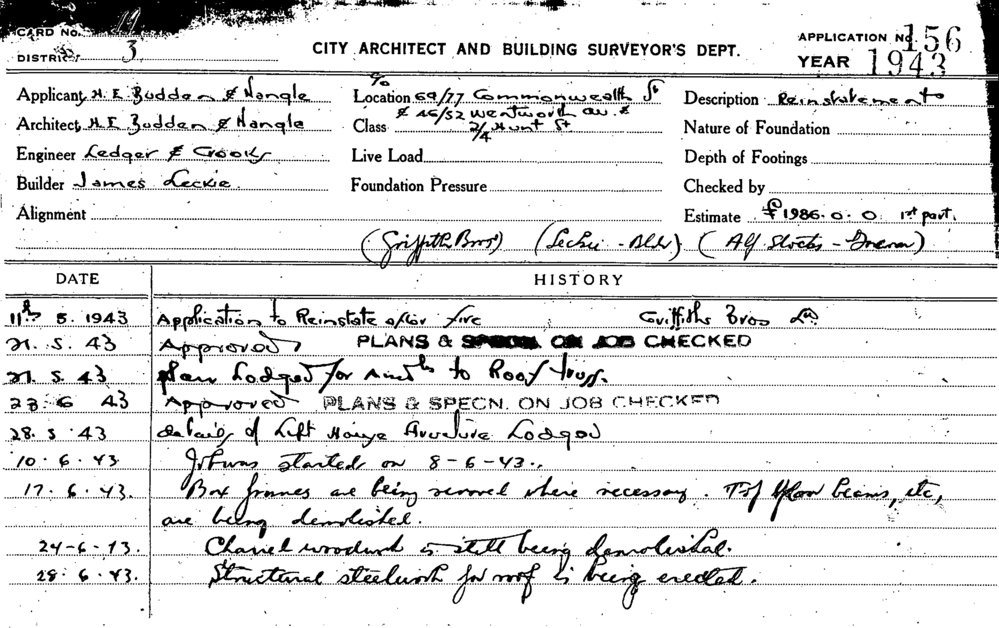 CARD NO. 19
DISTRICT 3
CITY ARCHITECT AND BUILDING SURVEYOR'S DEPT.
APPLICATION No. 156
YEAR 1943
Applicant H. E. Budden & Nangle
Location c/o 69/77 Commonwealth St
Description Reinstatements
Architect H. E. Budden & Nangle
& 46/52 Wentworth Av. &
Class 2/4 Hunt St
Nature of Foundation
Engineer Ledger & Crooks
Live Load
Depth of Footings
Builder James Leckie
Foundation Pressure
Checked by
Alignment
Estimate £1986.0.0 1st part.
(Griffith Bros) (Leckie - Bldr) (Alf Stocks - Foreman)
DATE HISTORY
11th 5. 1943 Application to Reinstate after fire Griffiths Bros Ld.
21. 5. 43 Approved PLANS & SPECN. ON JOB CHECKED
21. 5. 43 plan Lodged for amdts to Roof truss.
23. 6 43 Approved PLANS & SPECN. ON JOB CHECKED
28. 5. 43 details of Lift House Lodged
10. 6. 43 Job was started on 8-6-43.
17. 6. 43. Box frames are being removed where necessary. Top floor beams, etc,
are being demolished.
24-6-43. Charred woodwork is still being demolished.
28. 6. 43. Structural steelwork for roof is being erected.